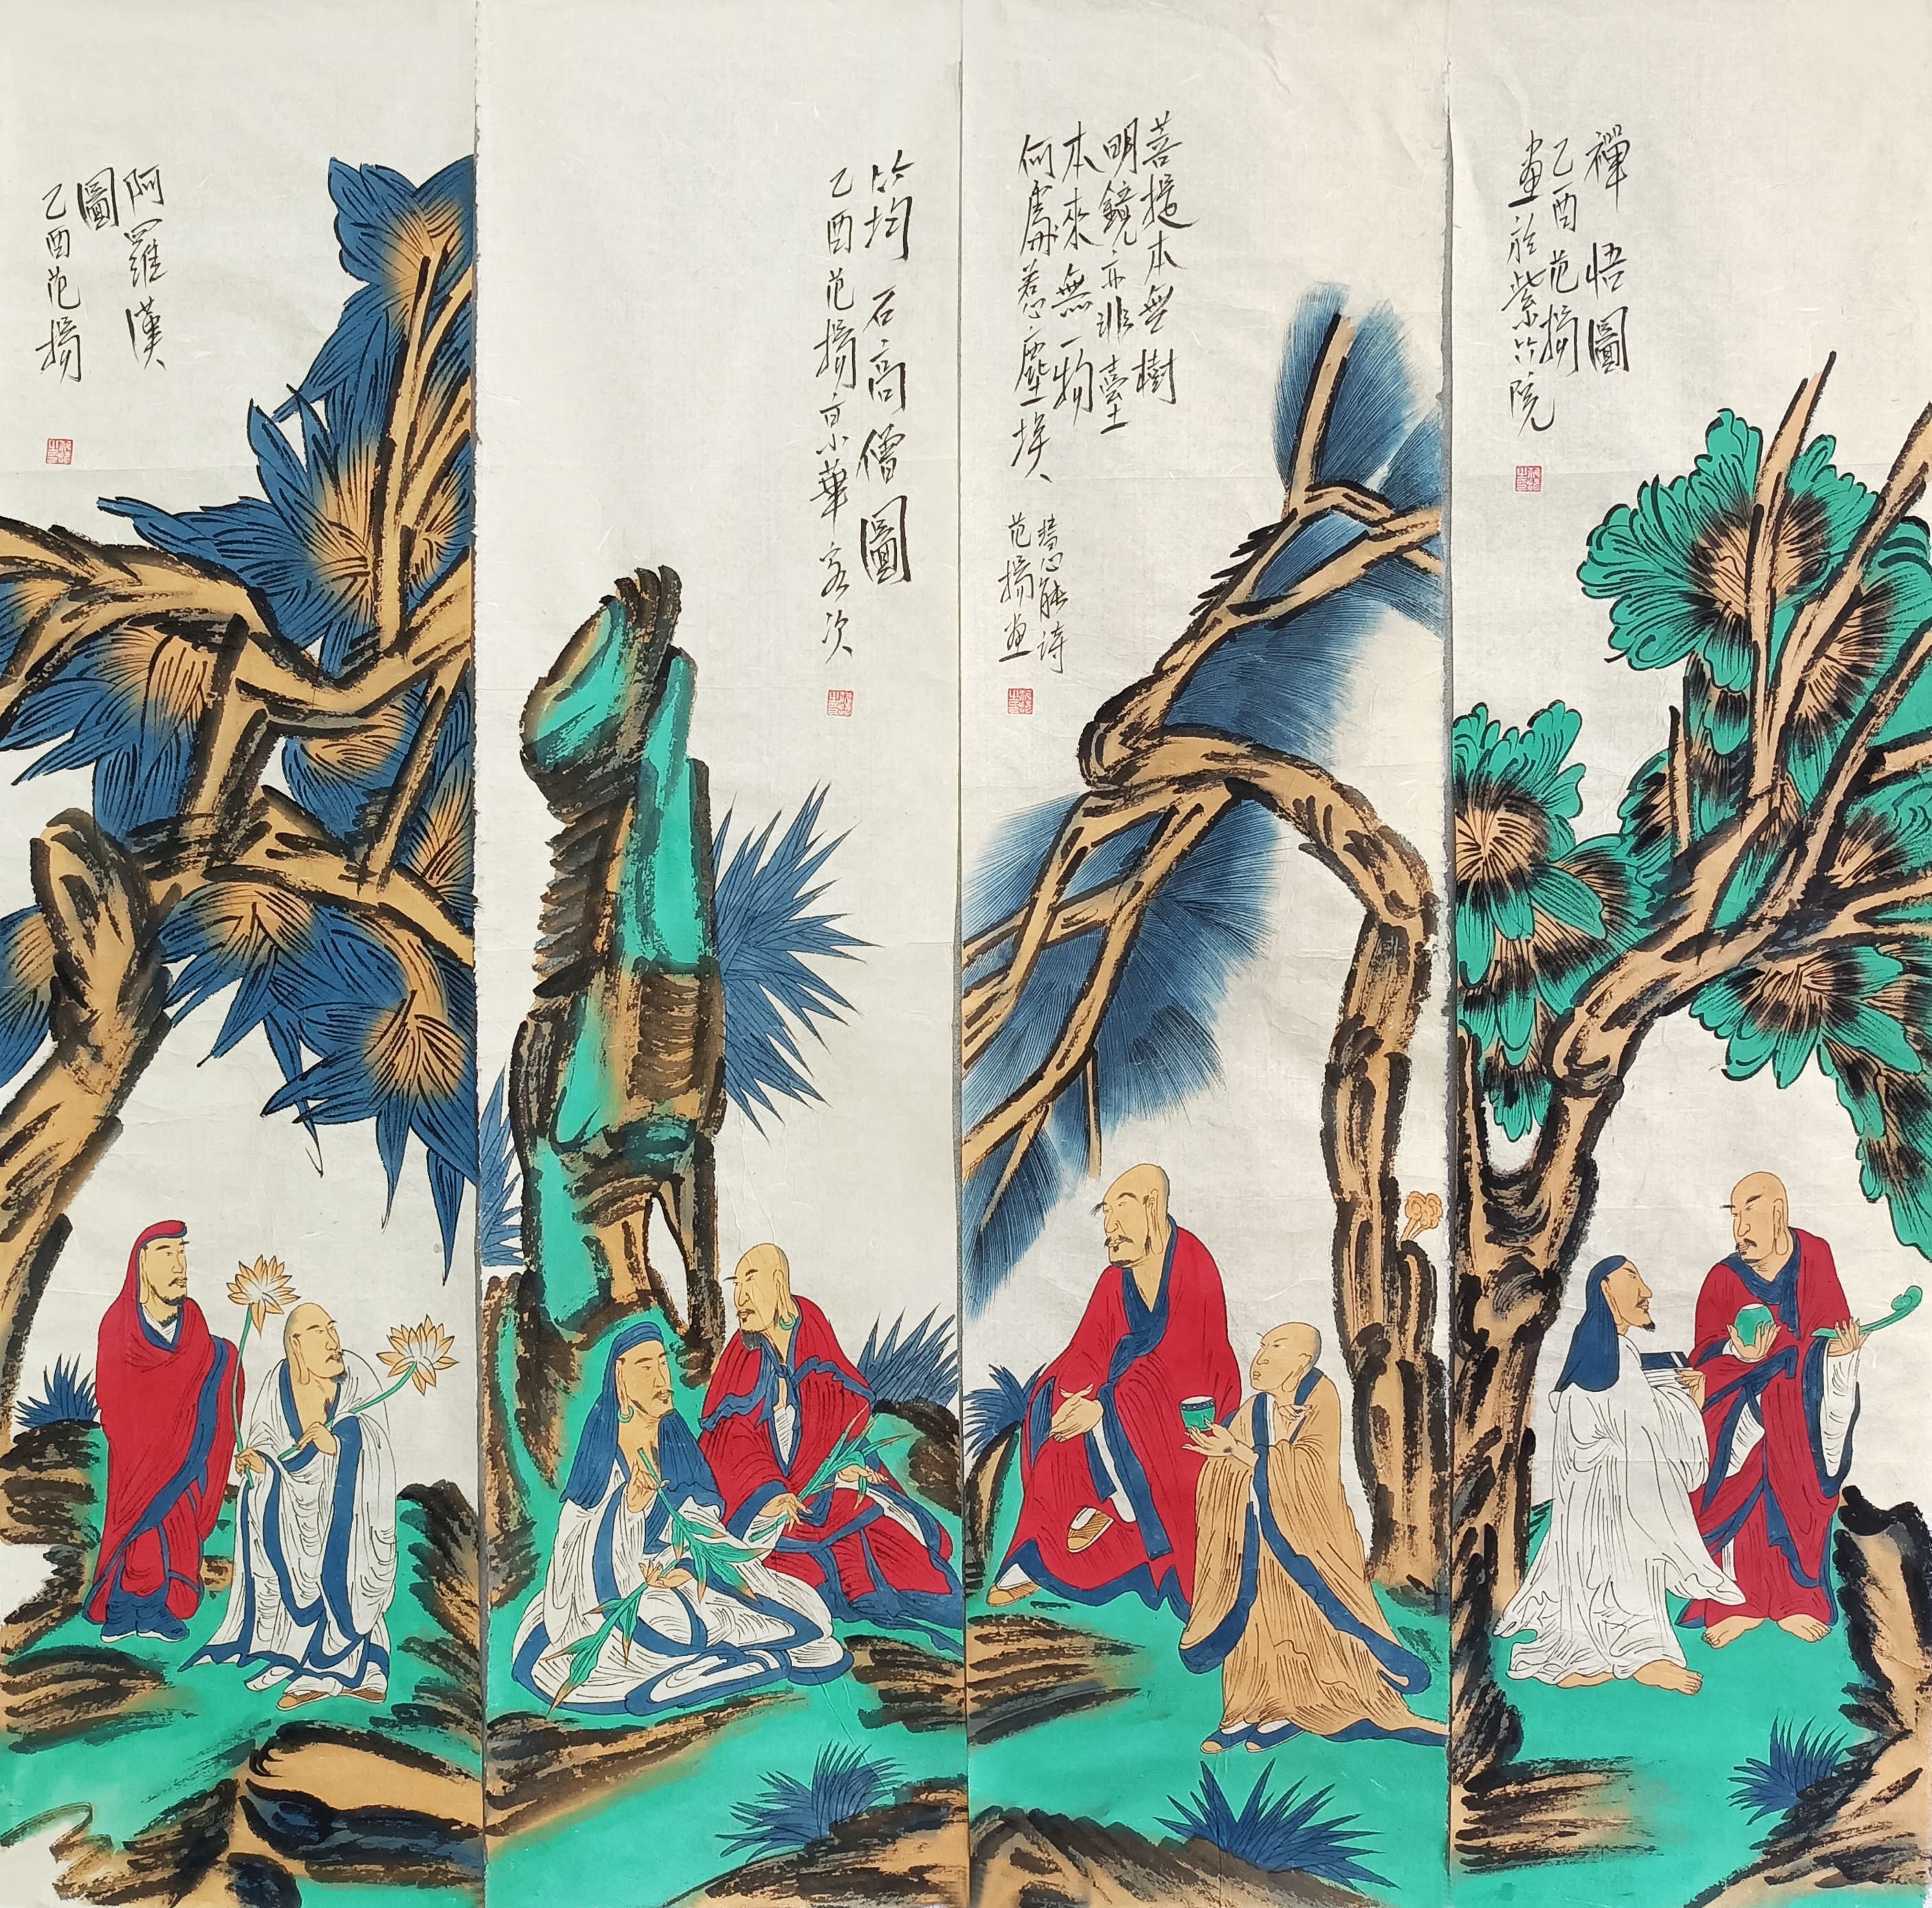 禪悟圖
乙酉范揚
畫於紫竹院
菩提本無樹
明鏡亦非臺
本來無一物
何處惹塵埃
慧能詩
范揚畫
筠石高僧圖
乙酉范揚京華客次
阿羅漢
圖
乙酉范揚